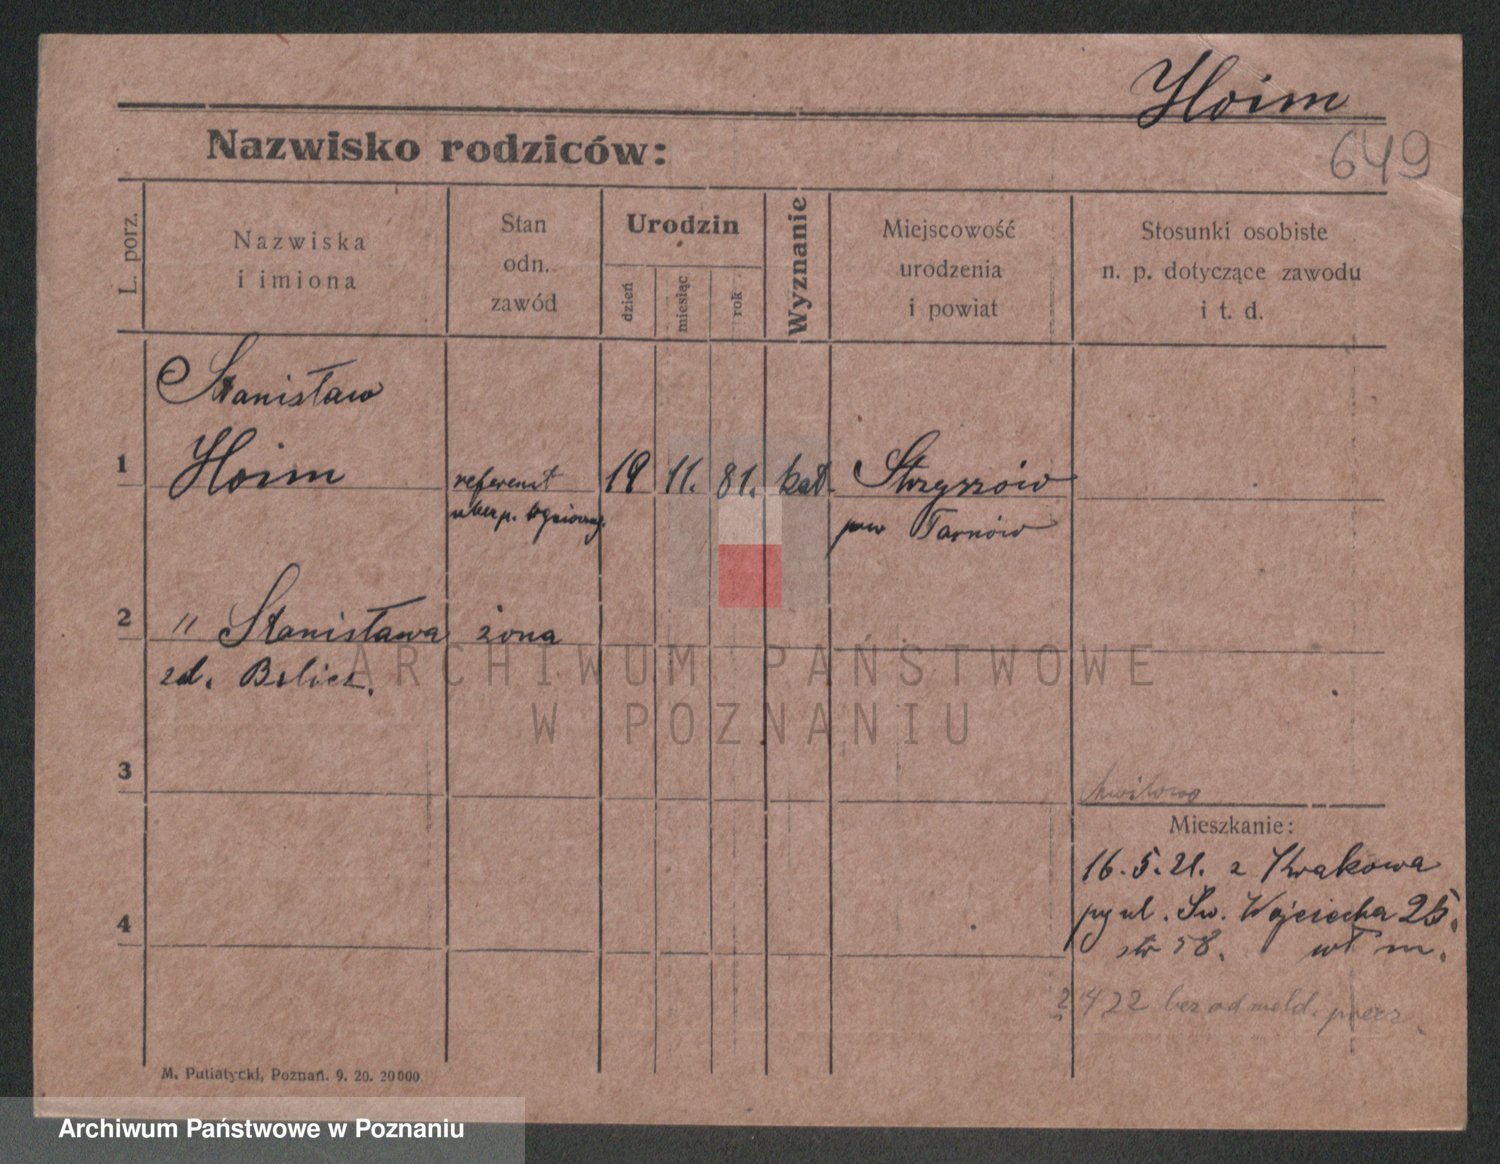 Hoim
649
Nazwisko rodziców:
L. porz.
Nazwiska
i imiona
Stan
odn.
zawód
Urodzin
dzień
miesiąc
rok
Wyznanie
Miejscowość
urodzenia
i powiat
Stosunki osobiste
n. p. dotyczące zawodu
i t. d.
Stanisław
1 Hoim referent 19 11. 81. kat. Strzyszów
pow Tarnów
2 " Stanisława żona
zd. Belicz.
ARCHIWUM PAŃSTWOWE
W POZNANIU
3
chwilowo
Mieszkanie:
16.5.21. z Krakowa
py ul. Św. Wojciecha 25.
str 58. wł m.
4
422 bez odmeld.
M. Putiatycki, Poznań. 9. 20. 20000.
Archiwum Państwowe w Poznaniu